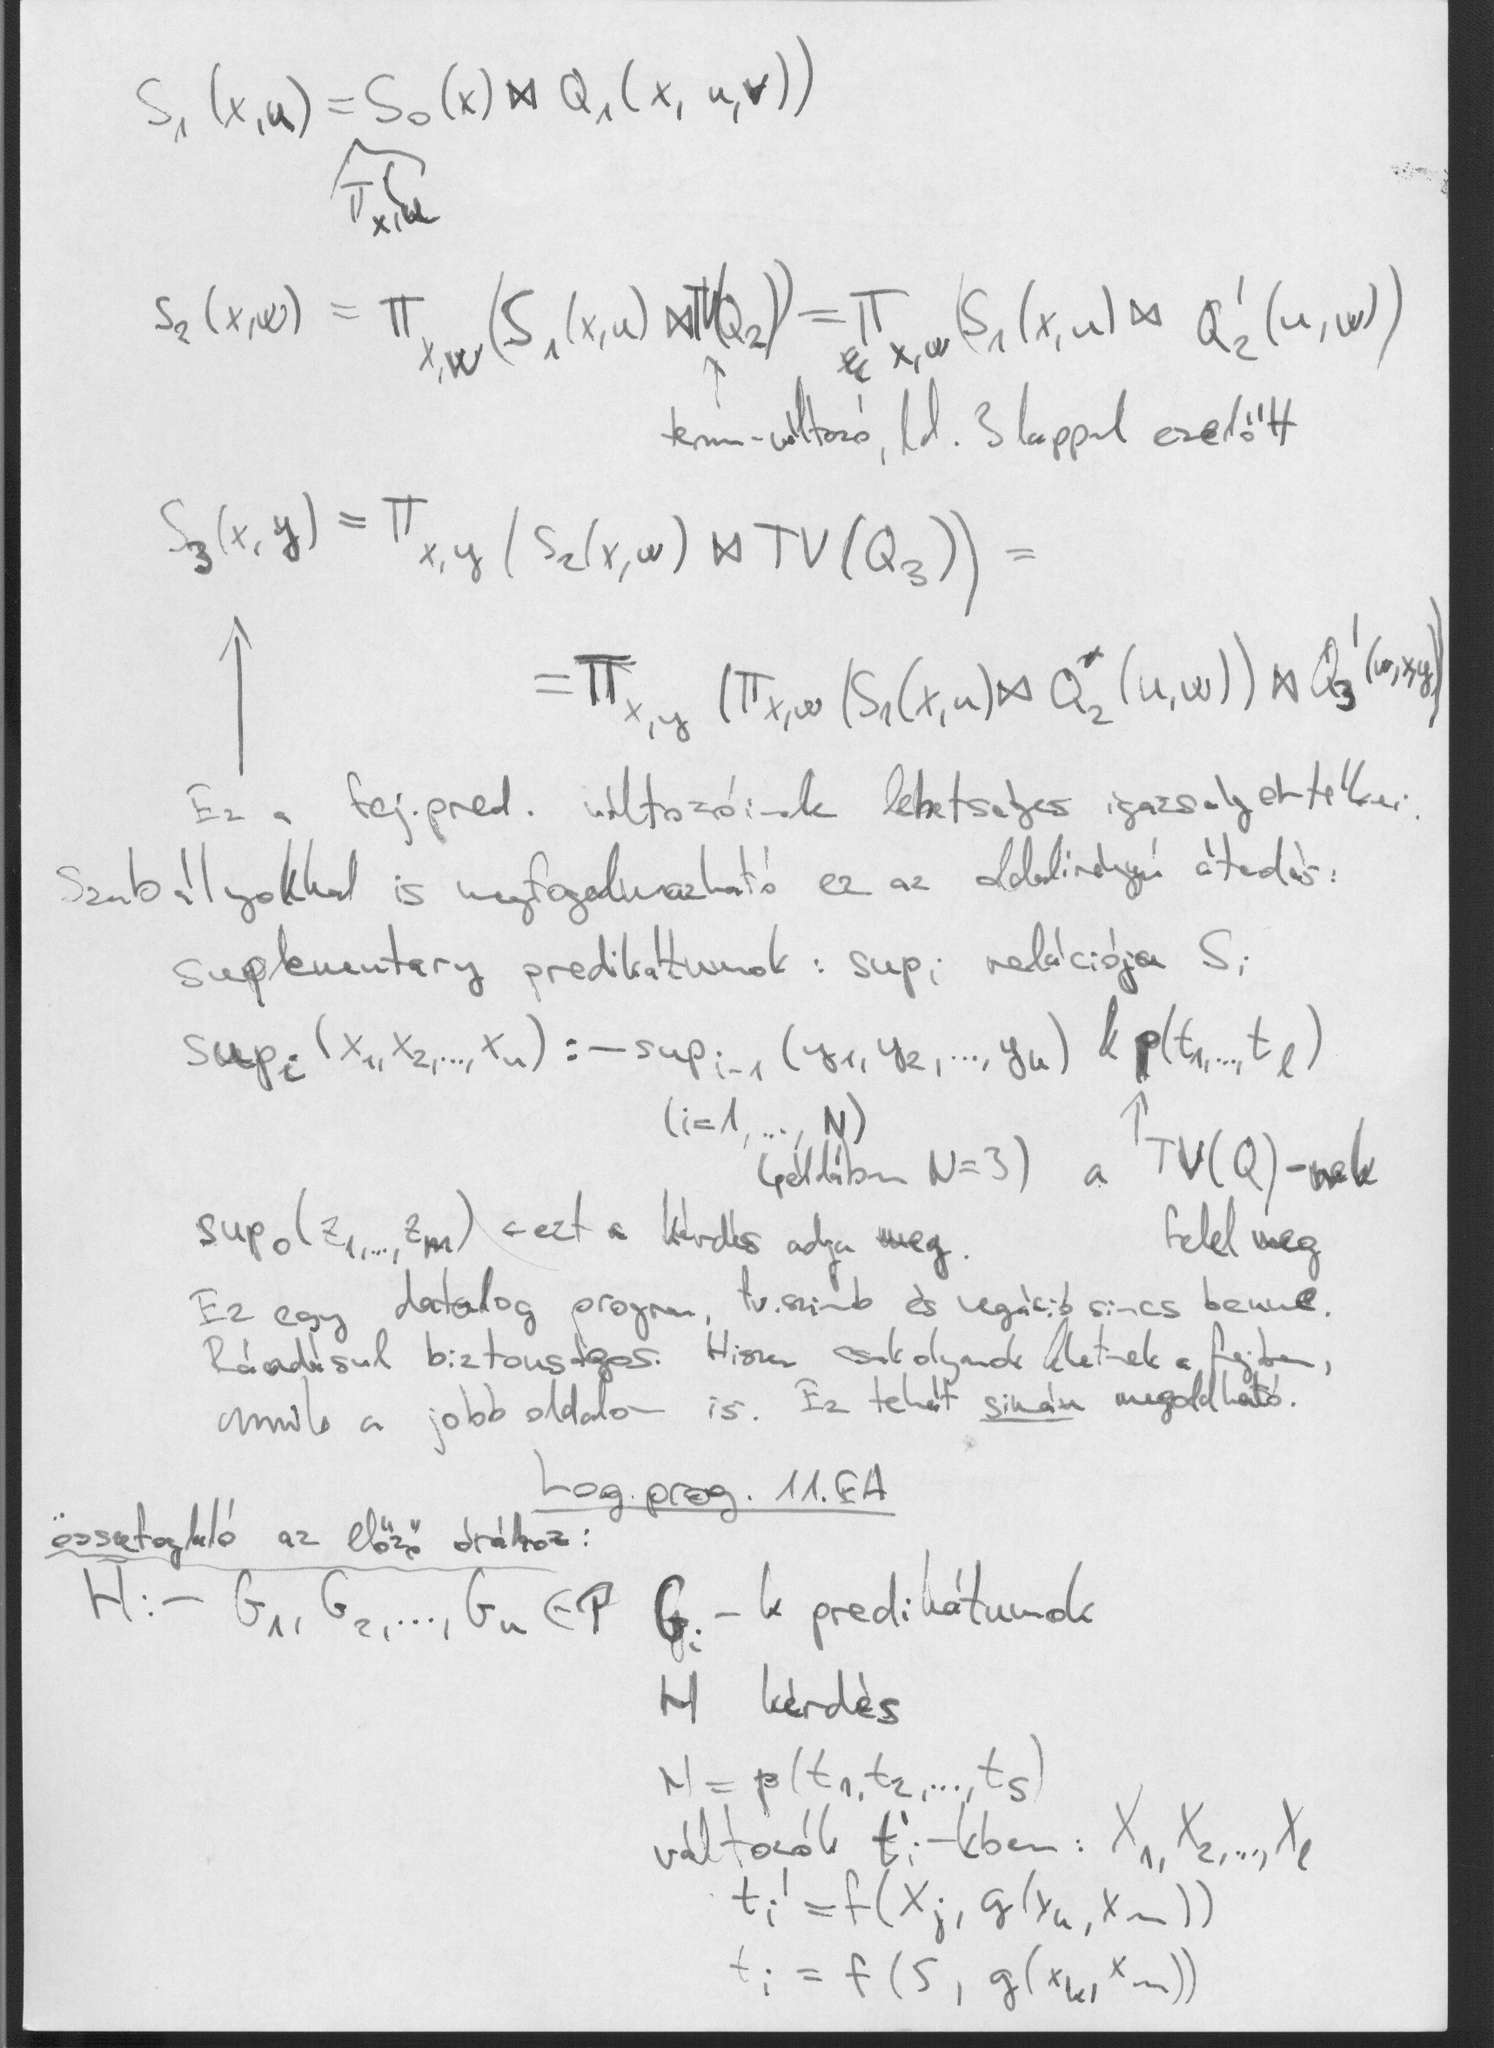 S₁(x,u) = S₀(x) ⋈ Q₁(x, u, v))
Π x,u (
S₂(x,w) = Π x,w (S₁(x,u) ⋈ TV(Q₂)) = Π x,w (S₁(x,u) ⋈ Q₂'(u,w))
↑
term-változó, ld. 3 lappal ezelőtt
S₃(x,y) = Π x,y (S₂(x,w) ⋈ TV(Q₃)) =
= Π x,y (Π x,w (S₁(x,u) ⋈ Q₂'(u,w)) ⋈ Q₃'(w,x,y))
Ez a fej.pred. változóinak lehetséges igazságértékei.
Szabályokkal is megfogalmazható ez az oldalirányú átadás:
suplementary predikátumok: supᵢ relációja Sᵢ
supᵢ(x₁,x₂,...,xₙ) :- supᵢ₋₁(y₁,y₂,...,yₖ) & p(t₁,...,tₗ)
(i=1,...,N) ↑
(példában N=3) a TV(Q)-nak
sup₀(z₁,...,zₘ) ← ezt a kérdés adja meg. felel meg
Ez egy datalog program, fv.szimb és negáció sincs benne.
Ráadásul biztonságos. Hiszen csak olyanok lehetnek a fejben,
amik a jobb oldalon is. Ez tehát simán megoldható.
Log.prog. 11.EA
összefoglaló az előző órákhoz:
H:- G₁, G₂,..., Gₙ ∈ P Gᵢ-k predikátumok
H kérdés
H = p(t₁,t₂,...,t₅)
változók tᵢ'-kben: X₁,X₂,...,Xₗ
tᵢ' = f(Xⱼ, g(xₖ,xₘ))
tᵢ = f(5, g(xₖ,xₘ))